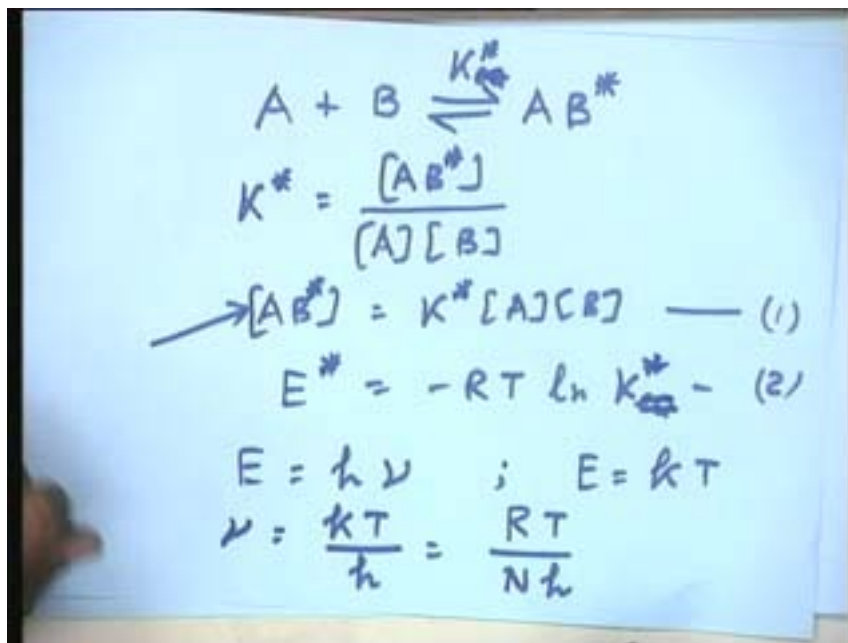 K*
A + B ⇌ AB*
K* = [AB*] / [A][B]
[AB*] = K* [A][B] — (1)
E* = - RT ln K* - (2)
E = hν ; E = kT
ν = kT / h = RT / Nh